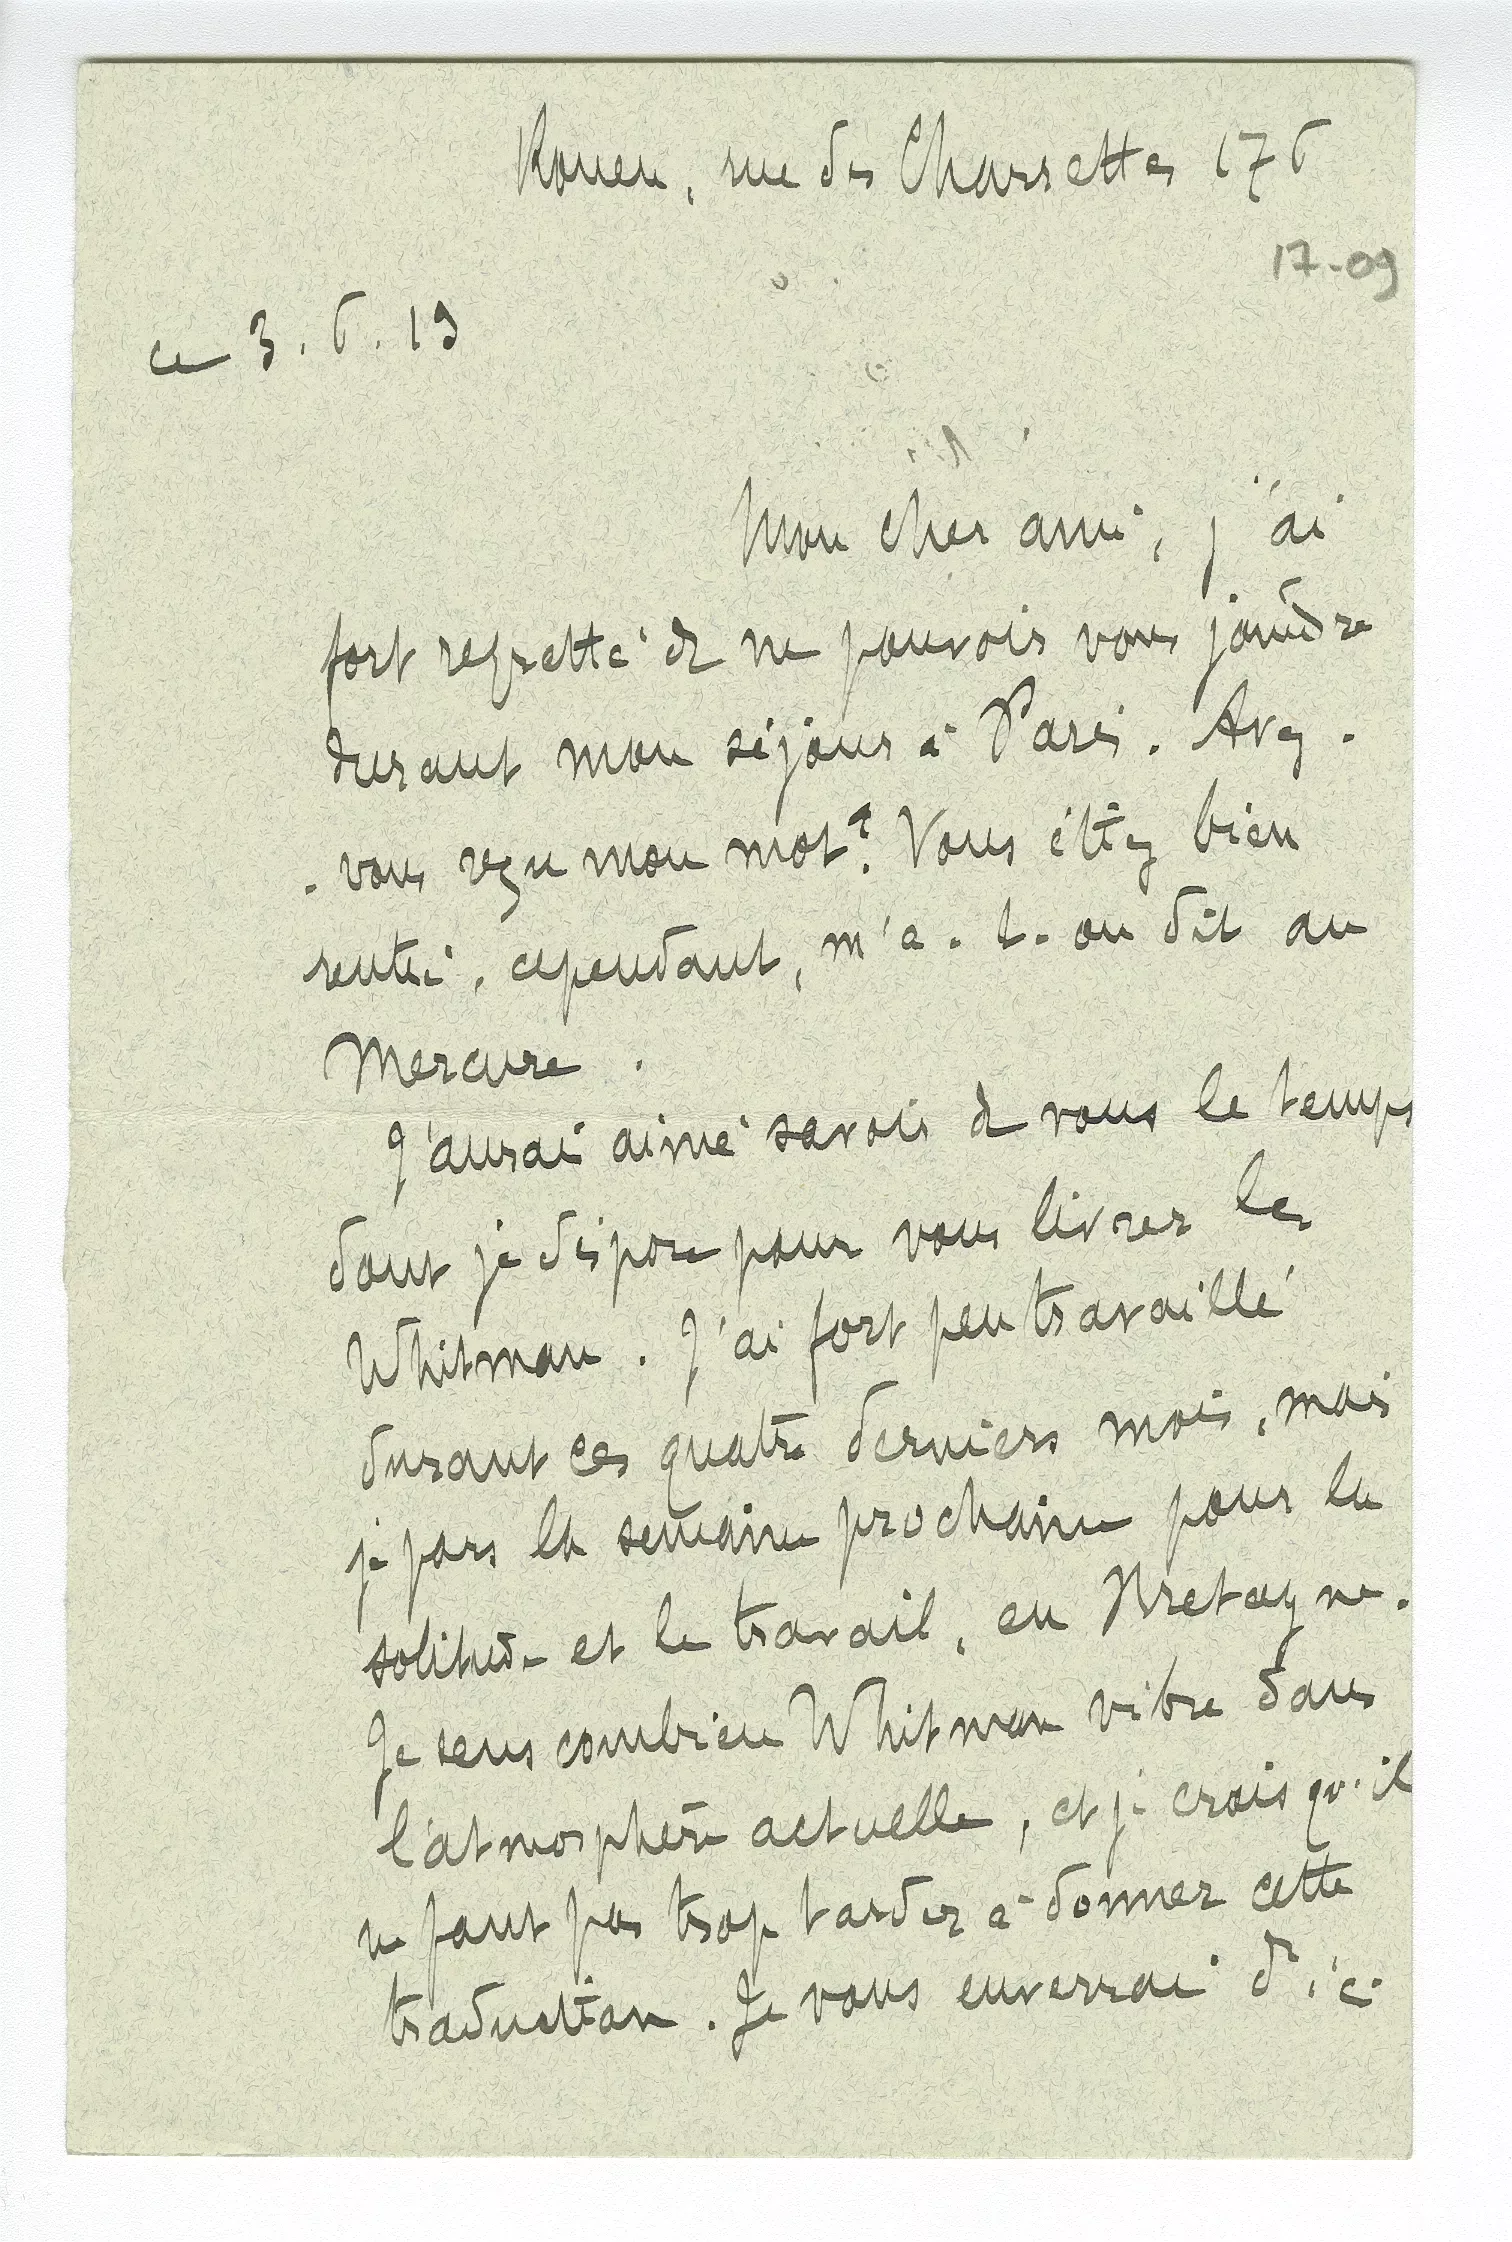 Rouen, rue des Charrettes 176
17-09
ce 3.6.19
Mon cher ami, j'ai
fort regretté de ne pouvoir vous joindre
durant mon séjour à Paris. Avez-
-vous reçu mon mot? Vous étiez bien
rentré, cependant, m'a-t-on dit au
Mercure.
J'aurai aimé savoir de vous le temps
dont je dispose pour vous livrer les
Whitman. J'ai fort peu travaillé
durant ces quatre derniers mois, mais
je pars la semaine prochaine pour la
solitude et le travail, en Bretagne.
Je sens combien Whitman vibre dans
l'atmosphère actuelle, et je crois qu'il
ne faut pas trop tarder à donner cette
traduction. Je vous enverrai d'ici